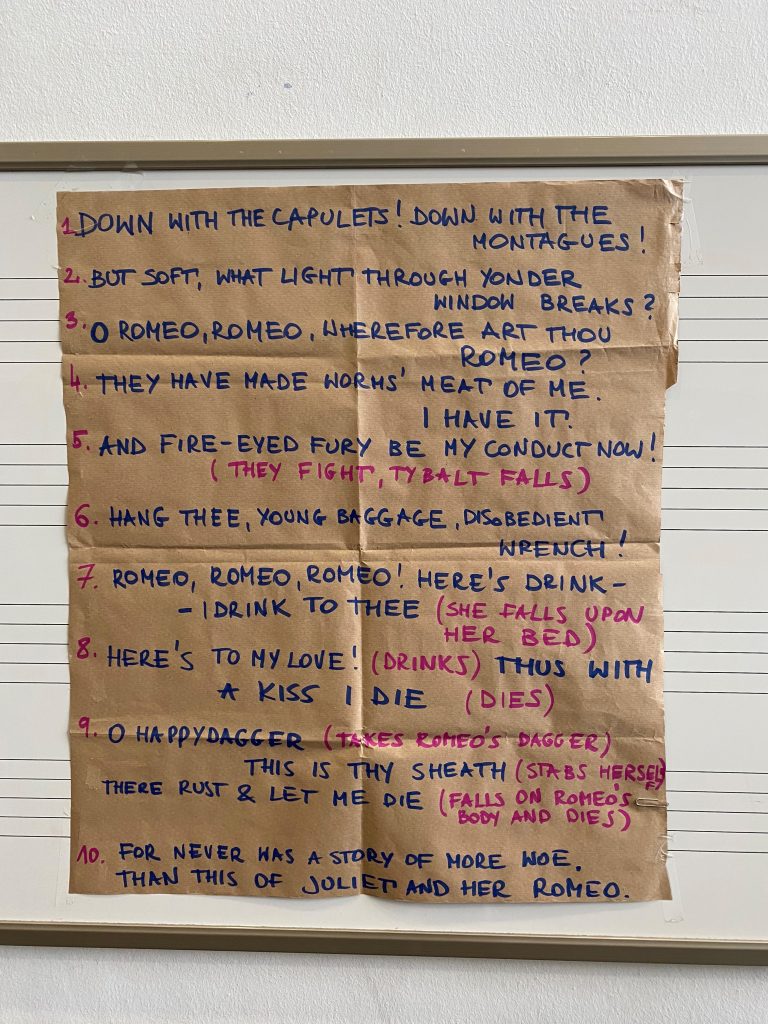 1. DOWN WITH THE CAPULETS! DOWN WITH THE
MONTAGUES!
2. BUT SOFT, WHAT LIGHT THROUGH YONDER
WINDOW BREAKS?
3. O ROMEO, ROMEO, WHEREFORE ART THOU
ROMEO?
4. THEY HAVE MADE WORMS' MEAT OF ME.
I HAVE IT.
5. AND FIRE-EYED FURY BE MY CONDUCT NOW!
(THEY FIGHT, TYBALT FALLS)
6. HANG THEE, YOUNG BAGGAGE, DISOBEDIENT
WRENCH!
7. ROMEO, ROMEO, ROMEO! HERE'S DRINK -
- I DRINK TO THEE (SHE FALLS UPON
HER BED)
8. HERE'S TO MY LOVE! (DRINKS) THUS WITH
A KISS I DIE (DIES)
9. O HAPPY DAGGER (TAKES ROMEO'S DAGGER)
THIS IS THY SHEATH (STABS HERSELF)
THERE RUST & LET ME DIE (FALLS ON ROMEO'S
BODY AND DIES)
10. FOR NEVER WAS A STORY OF MORE WOE.
THAN THIS OF JULIET AND HER ROMEO.